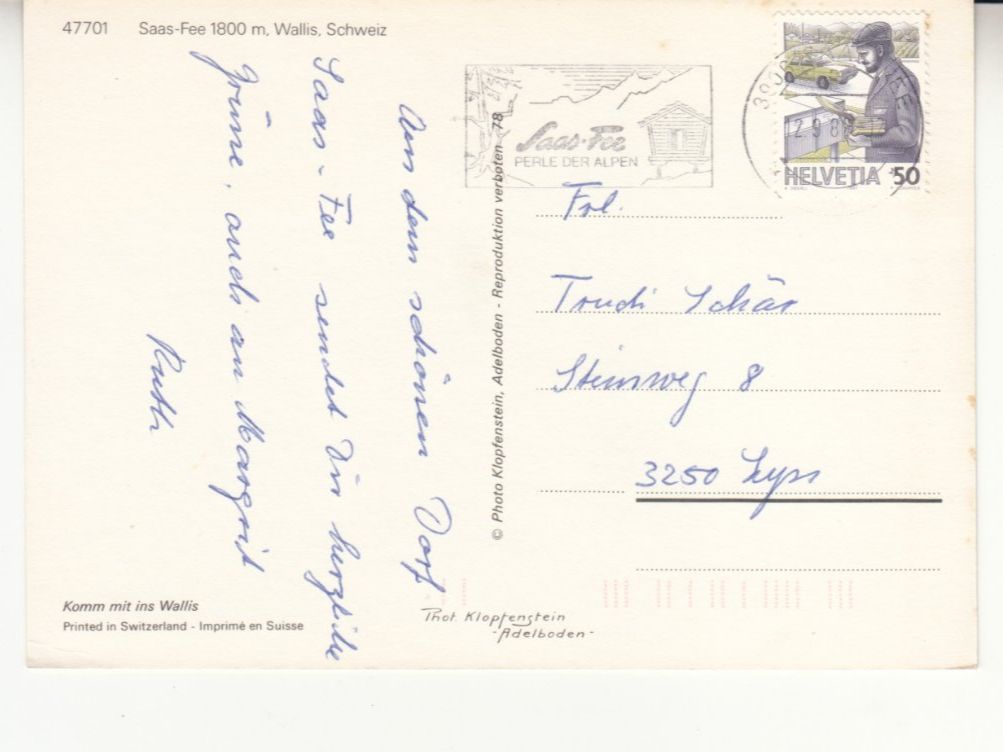 47701 Saas-Fee 1800 m, Wallis, Schweiz
Aus dem schönen Dorf
Saas-Fee sendet Dir herzliche
Grüsse, auch an Margrit
Ruth
Komm mit ins Wallis
Printed in Switzerland - Imprimé en Suisse
© Photo Klopfenstein, Adelboden - Reproduktion verboten 78
Phot. Klopfenstein
-Adelboden-
Saas-Fee
PERLE DER ALPEN
HELVETIA 50
Frl.
Trudi Schär
Steinweg 8
3250 Lyss